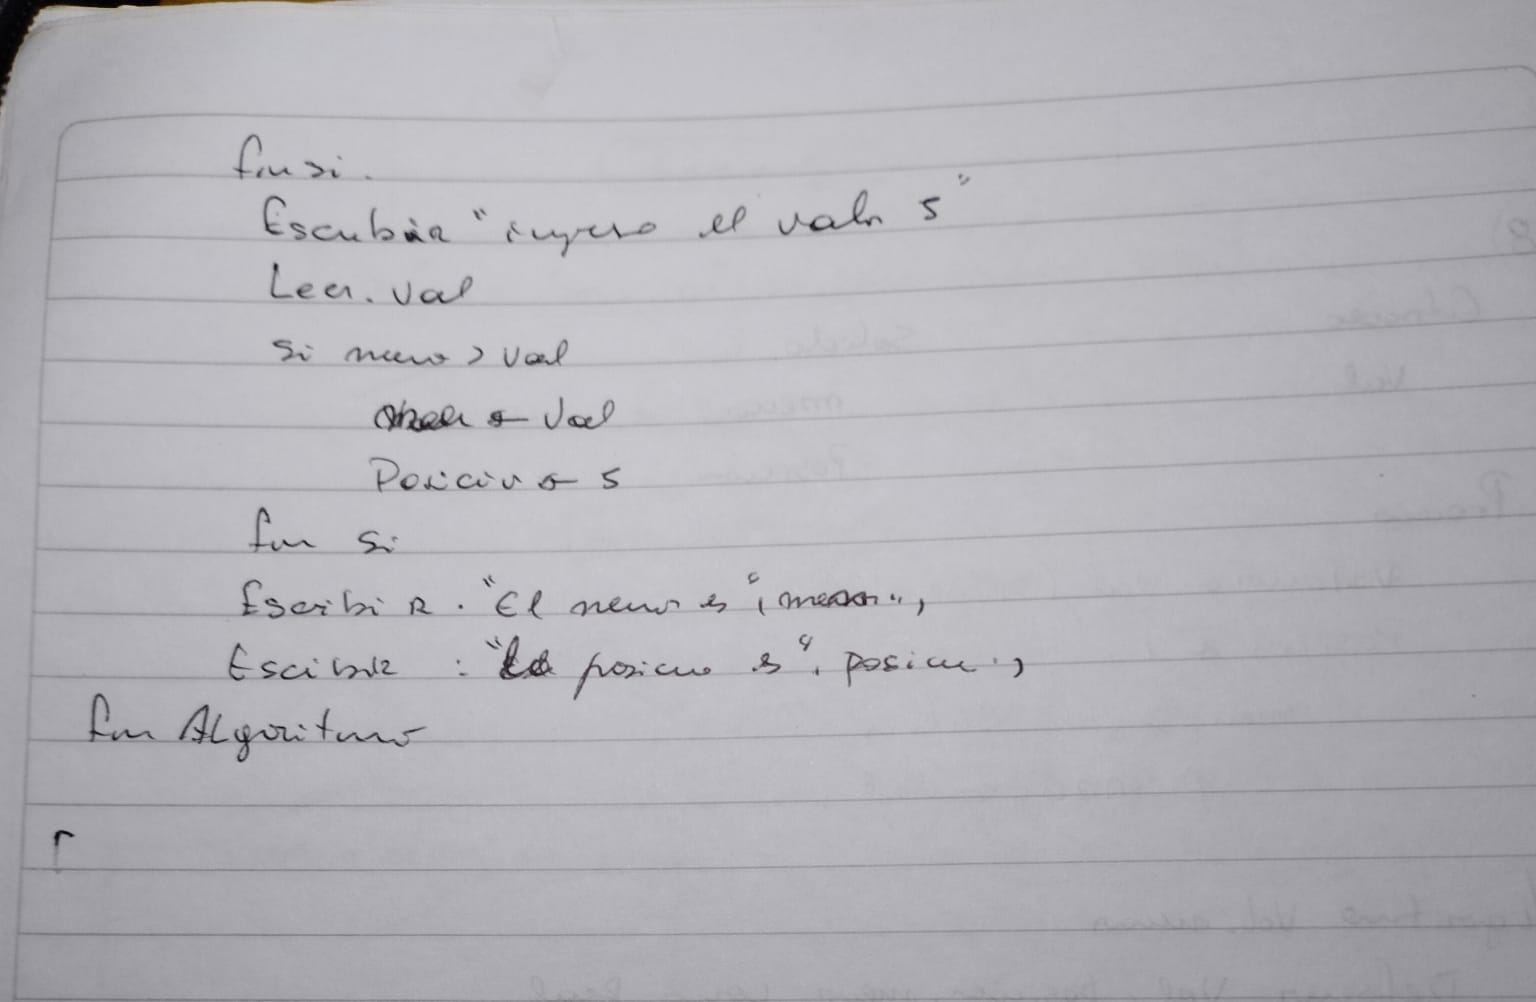 finsi.
Escribir "ingreso el valor 5"
Leer. val
Si menor > val
← val
Posicion ← 5
fin si
Escribir. "El menor es", menor.,
Escibir : "La posicion es", posicion.,
fin Algoritmo